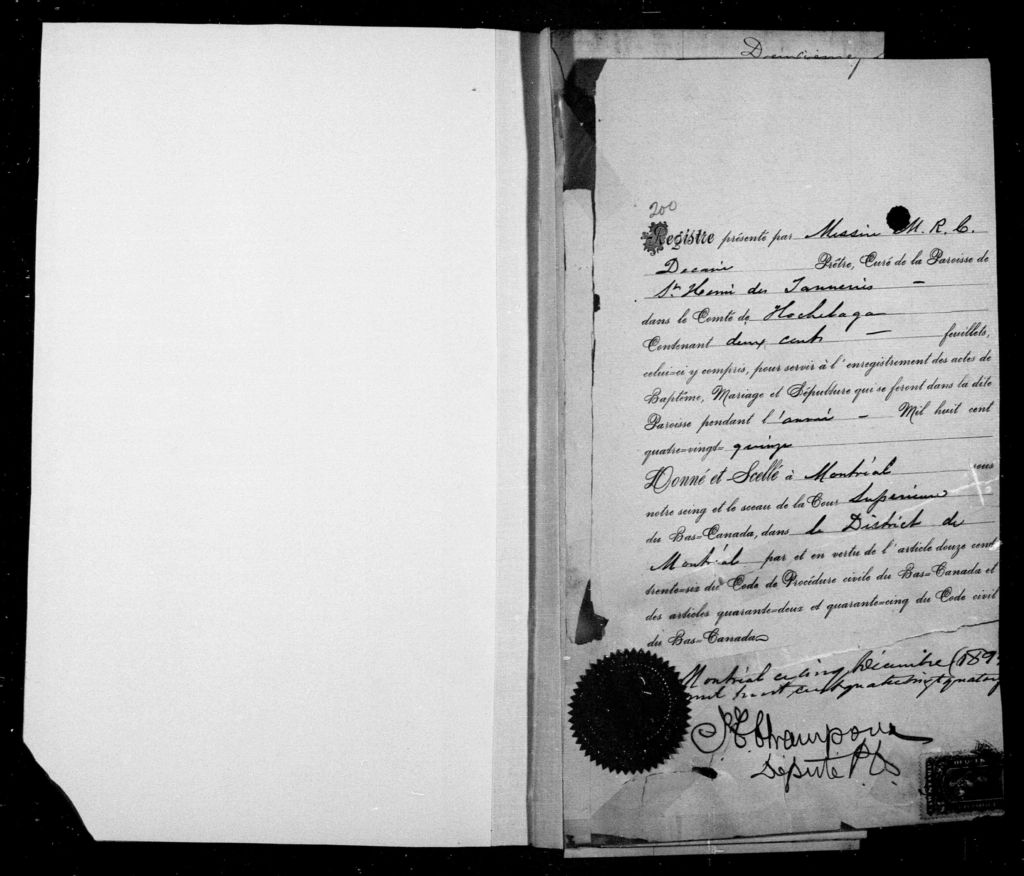 200
Registre présenté par Messire M. R. C.
Decarie Prêtre, Curé de la Paroisse de
St Henri des Tanneries —
dans le Comté de Hochelaga
Contenant deux cents — feuillets,
celui=ci y compris, pour servir à l'enregistrement des actes de
Baptême, Mariage et Sépulture qui se feront dans la dite
Paroisse pendant l'année — Mil huit cent
quatre=vingt= quinze
Donné et Scellé à Montréal sous
notre seing et le sceau de la Cour Supérieure
du Bas=Canada, dans le District de
Montréal par et en vertu de l'article douze cent
trente=six du Code de Procédure civile du Bas=Canada et
des articles quarante=deux et quarante=cinq du Code civil
du Bas=Canada
Montréal ce cinq Décembre (189
mil huit cent quatre vingt quatorz
Champoux
Député P.